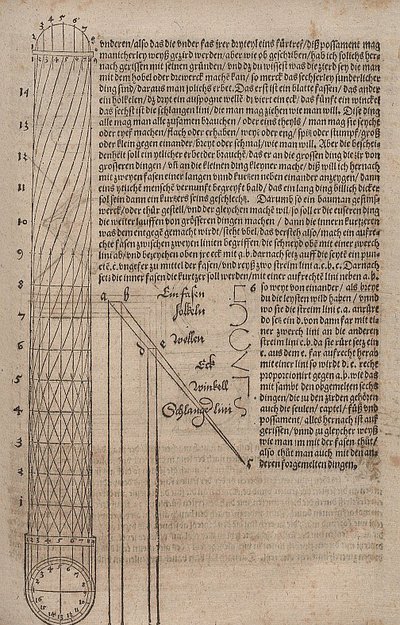 vnderen/also das die vnder fas jrer dryteyl eins fürtref/diß possament mag
manicherley weyß gezird werden/aber wie ob geschriben/hab ich solichs her-
nach gerissen mit seinen gründen/vnd das du wissest was die zierd sey die man
mit dem hobel oder drewerck machē kan/so merck das sechserley sunderlicher
ding sind/daraus man solichs erbet. Das erst ist ein blatte fassen/das ander
ein holkelen/dz dryt ein auspogne welle/dz viert ein eck/das fünft ein winckel
das sechst ist die schlangen lini/der man mag ziehen wie man will. Dise ding
alle mag man alle zusamen brauchen/oder eins theyls/man mag sie seycht
oder tyef machen/flach oder erhaben/weyt oder eng/spitz oder stumpf/groß
oder klein gegen einander/breyt oder schmal/wie man will. Aber die beschei-
denheit soll ein ytlicher erbeter brauchē/das er an die grossen ding die zir von
grösseren dingen/vñ an die kleinen ding kleyner mache/diß will ich hernach
in zweyen fasen einer langen vnnd kurtzen neben einander anzeygen/dann
eins ytliche menschē vernunft begreyft bald/das ein lang ding billich dicker
sol sein dann ein kurtzers seins geschlechtz. Darumb so ein bauman gesims-
werck/oder thür gestell/vnd der gleychen machē wil/so soll er die euseren ding
die weiter lauffen von grösseren dingen machen/dann die innern kürtzeren
was dem entgegē gemacht wirdt/steht vbel/das verstch also/mach ein aufrech-
te fasen zwischen zweyen linien begriffen/die schneyd obē mit einer zwerch
lini ab/vnd bezeychen oben jre eck mit a.b. darnach setz auff die seytē ein pun-
ctē.c. vngefer zu mittel der fasen/vnd reyß zwo streim lini a.c.b.c. Darnach
setz die inner fasen die kurtzer soll werden/mit einer aufrechtē lini neben a.b.
so weyt von einander/als breyt
du die leysten wild haben/vnnd
wo sie die streim lini c.a. anrürt
do setz ein d. von dann far mit ei-
ner zwerch lini an die anderen
streim lini c.b. da sie rürt setz ein
e. aus dem e. far aufrecht herab
mit einer lini so wirdt d.e. recht
proportionirt gegen a.b. wie das
mit sambt den obgemelten sechs
dingen/die zu den zirden gehören
auch die seulen/captel/füß vnd
possament/alles hernach ist auf
gerissen/vnnd zu gleycher weyß
wie man im mit der fasen thüt/
also thüt man auch mit den an-
deren forgemelten dingen.
1 2 3 4 5 6 7 8
14
13
12
11
10
9
8
7
6
5
4
3
2
1
a b
Ein fasen
holkeln
wellen
d e
Eck
Winkell
Schlangē lini
c
1 2 3 4 5 6 7 8